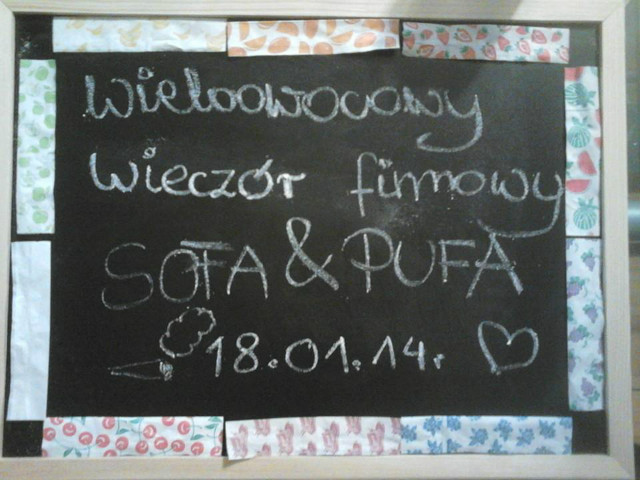 Wieloowocowy
Wieczór firmowy
SOFA & PUFA
18.01.14r